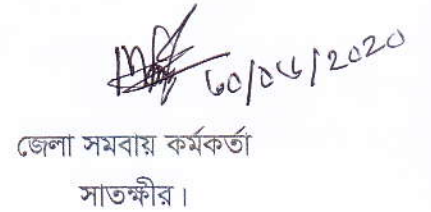 ৬০/০৬/2020
জেলা সমবায় কর্মকর্তা
সাতক্ষীর।